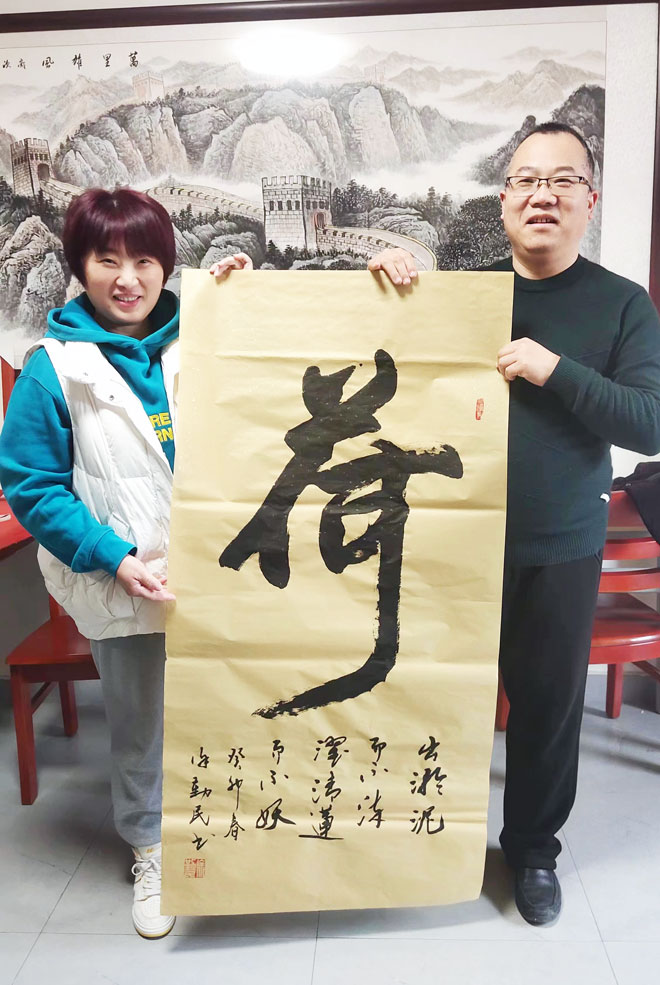 萬里雄風
荷
出淤泥
而不染
濯清蓮
而不妖
癸卯春
徐勤民书
RE
RN